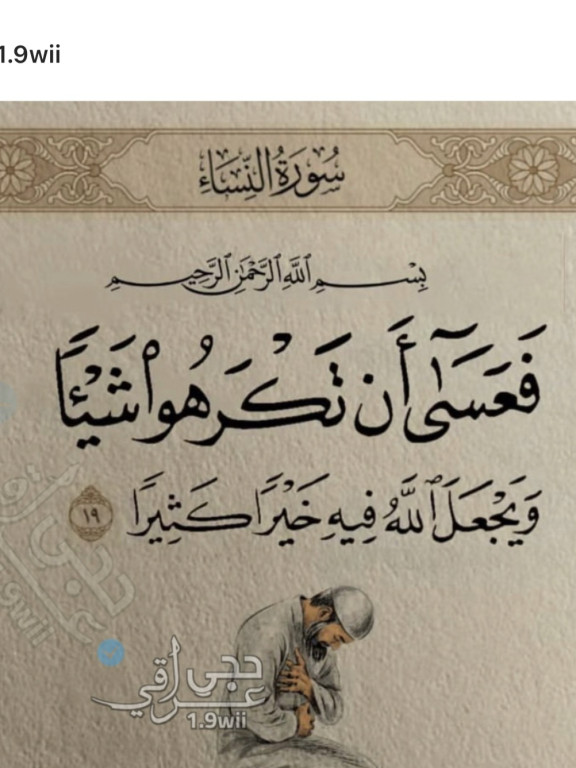 1.9wii
سُورَةُ النِّسَاءِ
بِسْمِ ٱللَّهِ ٱلرَّحْمَٰنِ ٱلرَّحِيمِ
فَعَسَىٰٓ أَن تَكْرَهُوا۟ شَيْـًٔا
وَيَجْعَلَ ٱللَّهُ فِيهِ خَيْرًا كَثِيرًا ١٩
حجي عراقي
1.9wii